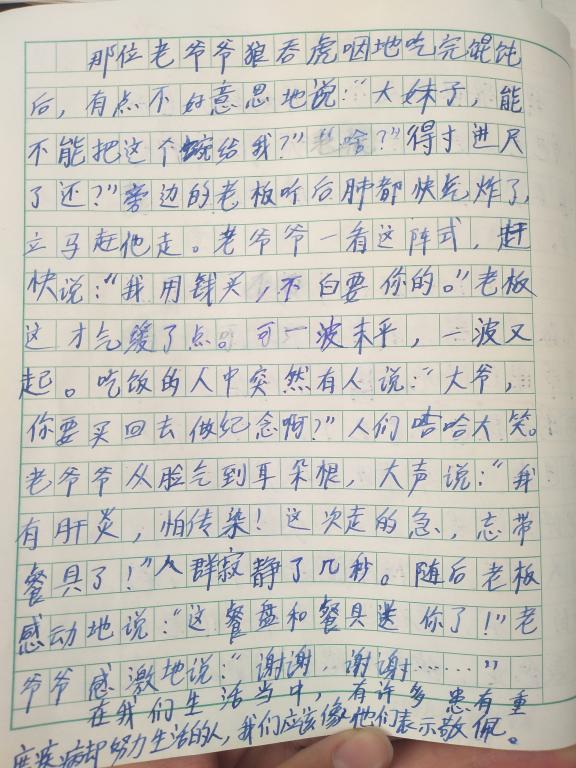 那位老爷爷狼吞虎咽地吃完馄饨
后，有点不好意思地说：“大妹子，能
不能把这个碗给我？”“啥？”得寸进尺
了还？”旁边的老板听后肺都快气炸了，
立马赶他走。老爷爷一看这阵式，赶
快说：“我用钱买，不白要你的。”老板
这才气缓了点。可一波未平，一波又
起。吃饭的人中突然有人说：“大爷，
你要买回去做纪念啊？”人们哈哈大笑。
老爷爷从脸气到耳朵根，大声说：“我
有肝炎，怕传染！这次走的急，忘带
餐具了！”人群寂静了几秒。随后老板
感动地说：“这餐盘和餐具送你了！”老
爷爷感激地说：“谢谢，谢谢……”
在我们生活当中，有许多患有重
度疾病却努力生活的人，我们应该像他们表示敬佩。